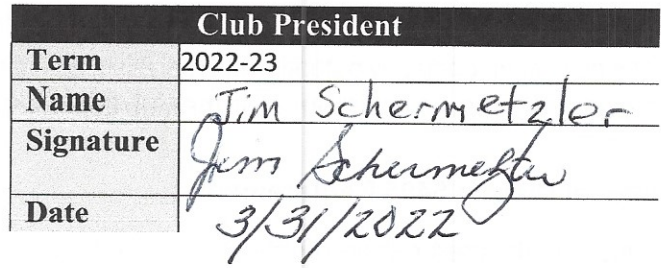 Club President
Term 2022-23
Name Jim Schermetzler
Signature Jim Schermetzler
Date 3/31/2022